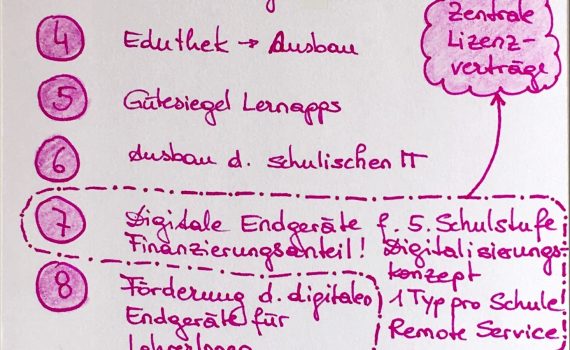 Zentrale
Lizenz-
verträge
4 Eduthek → Ausbau
5 Gütesiegel Lernapps
6 Ausbau d. schulischen IT
7 Digitale Endgeräte f. 5. Schulstufe
Finanzierungsanteil! Digitalisierungs-
konzept
8 Förderung d. digitalen 1 Typ pro Schule!
Endgeräte für Remote Service!
LehrerInnen